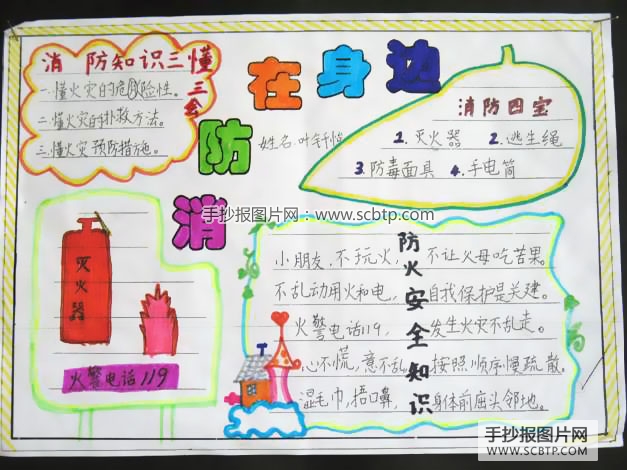 消防知识三懂
三会
一懂火灾的危险性。
二懂火灾的扑救方法。
三懂火灾预防措施。
消防在身边
姓名:叶钎
消防四宝
1.灭火器 2.逃生绳
3.防毒面具 4.手电筒
手抄报图片网:www.scbtp.com
灭火器
火警电话119
防火安全知识
小朋友,不玩火, 不让火母吃苦果。
不乱动用火和电, 自我保护是关建。
火警电话119, 发生火灾不乱走。
心不慌,意不乱, 按照顺序慢疏散。
湿毛巾,捂口鼻, 身体前屈头邻地。
手抄报图片网
SCBTP.COM